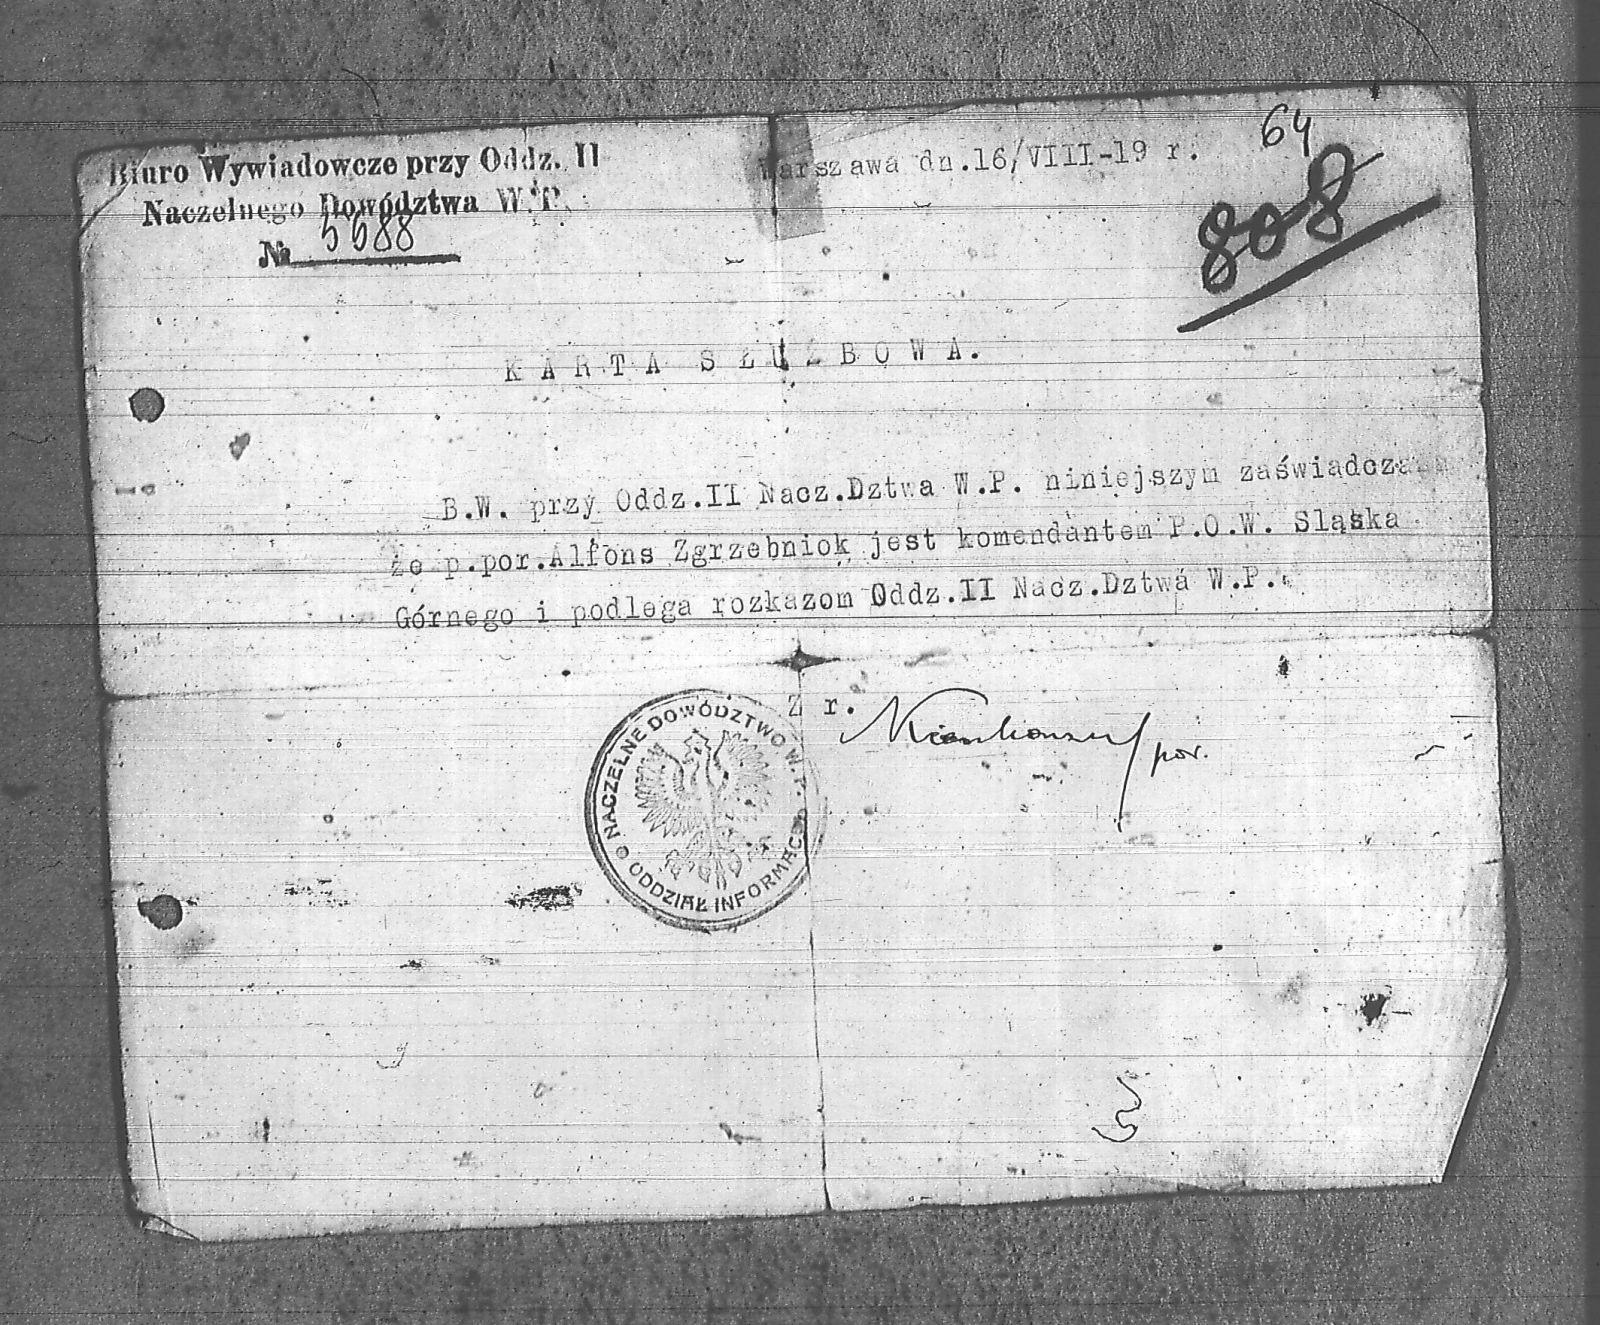 Biuro Wywiadowcze przy Oddz. II
Naczelnego Dowództwa W.P.
№ 5688
Warszawa dn.16/VIII-19 r.
64
808
KARTA SŁUŻBOWA.
B.W. przy Oddz.II Nacz.Dztwa W.P. niniejszym zaświadcza
że p.por.Alfons Zgrzebniok jest komendantem P.O.W. Sląska
Górnego i podlega rozkazom Oddz.II Nacz.Dztwa W.P.
Z r.
por.
NACZELNE DOWÓDZTWO W.P.
ODDZIAŁ INFORMAC